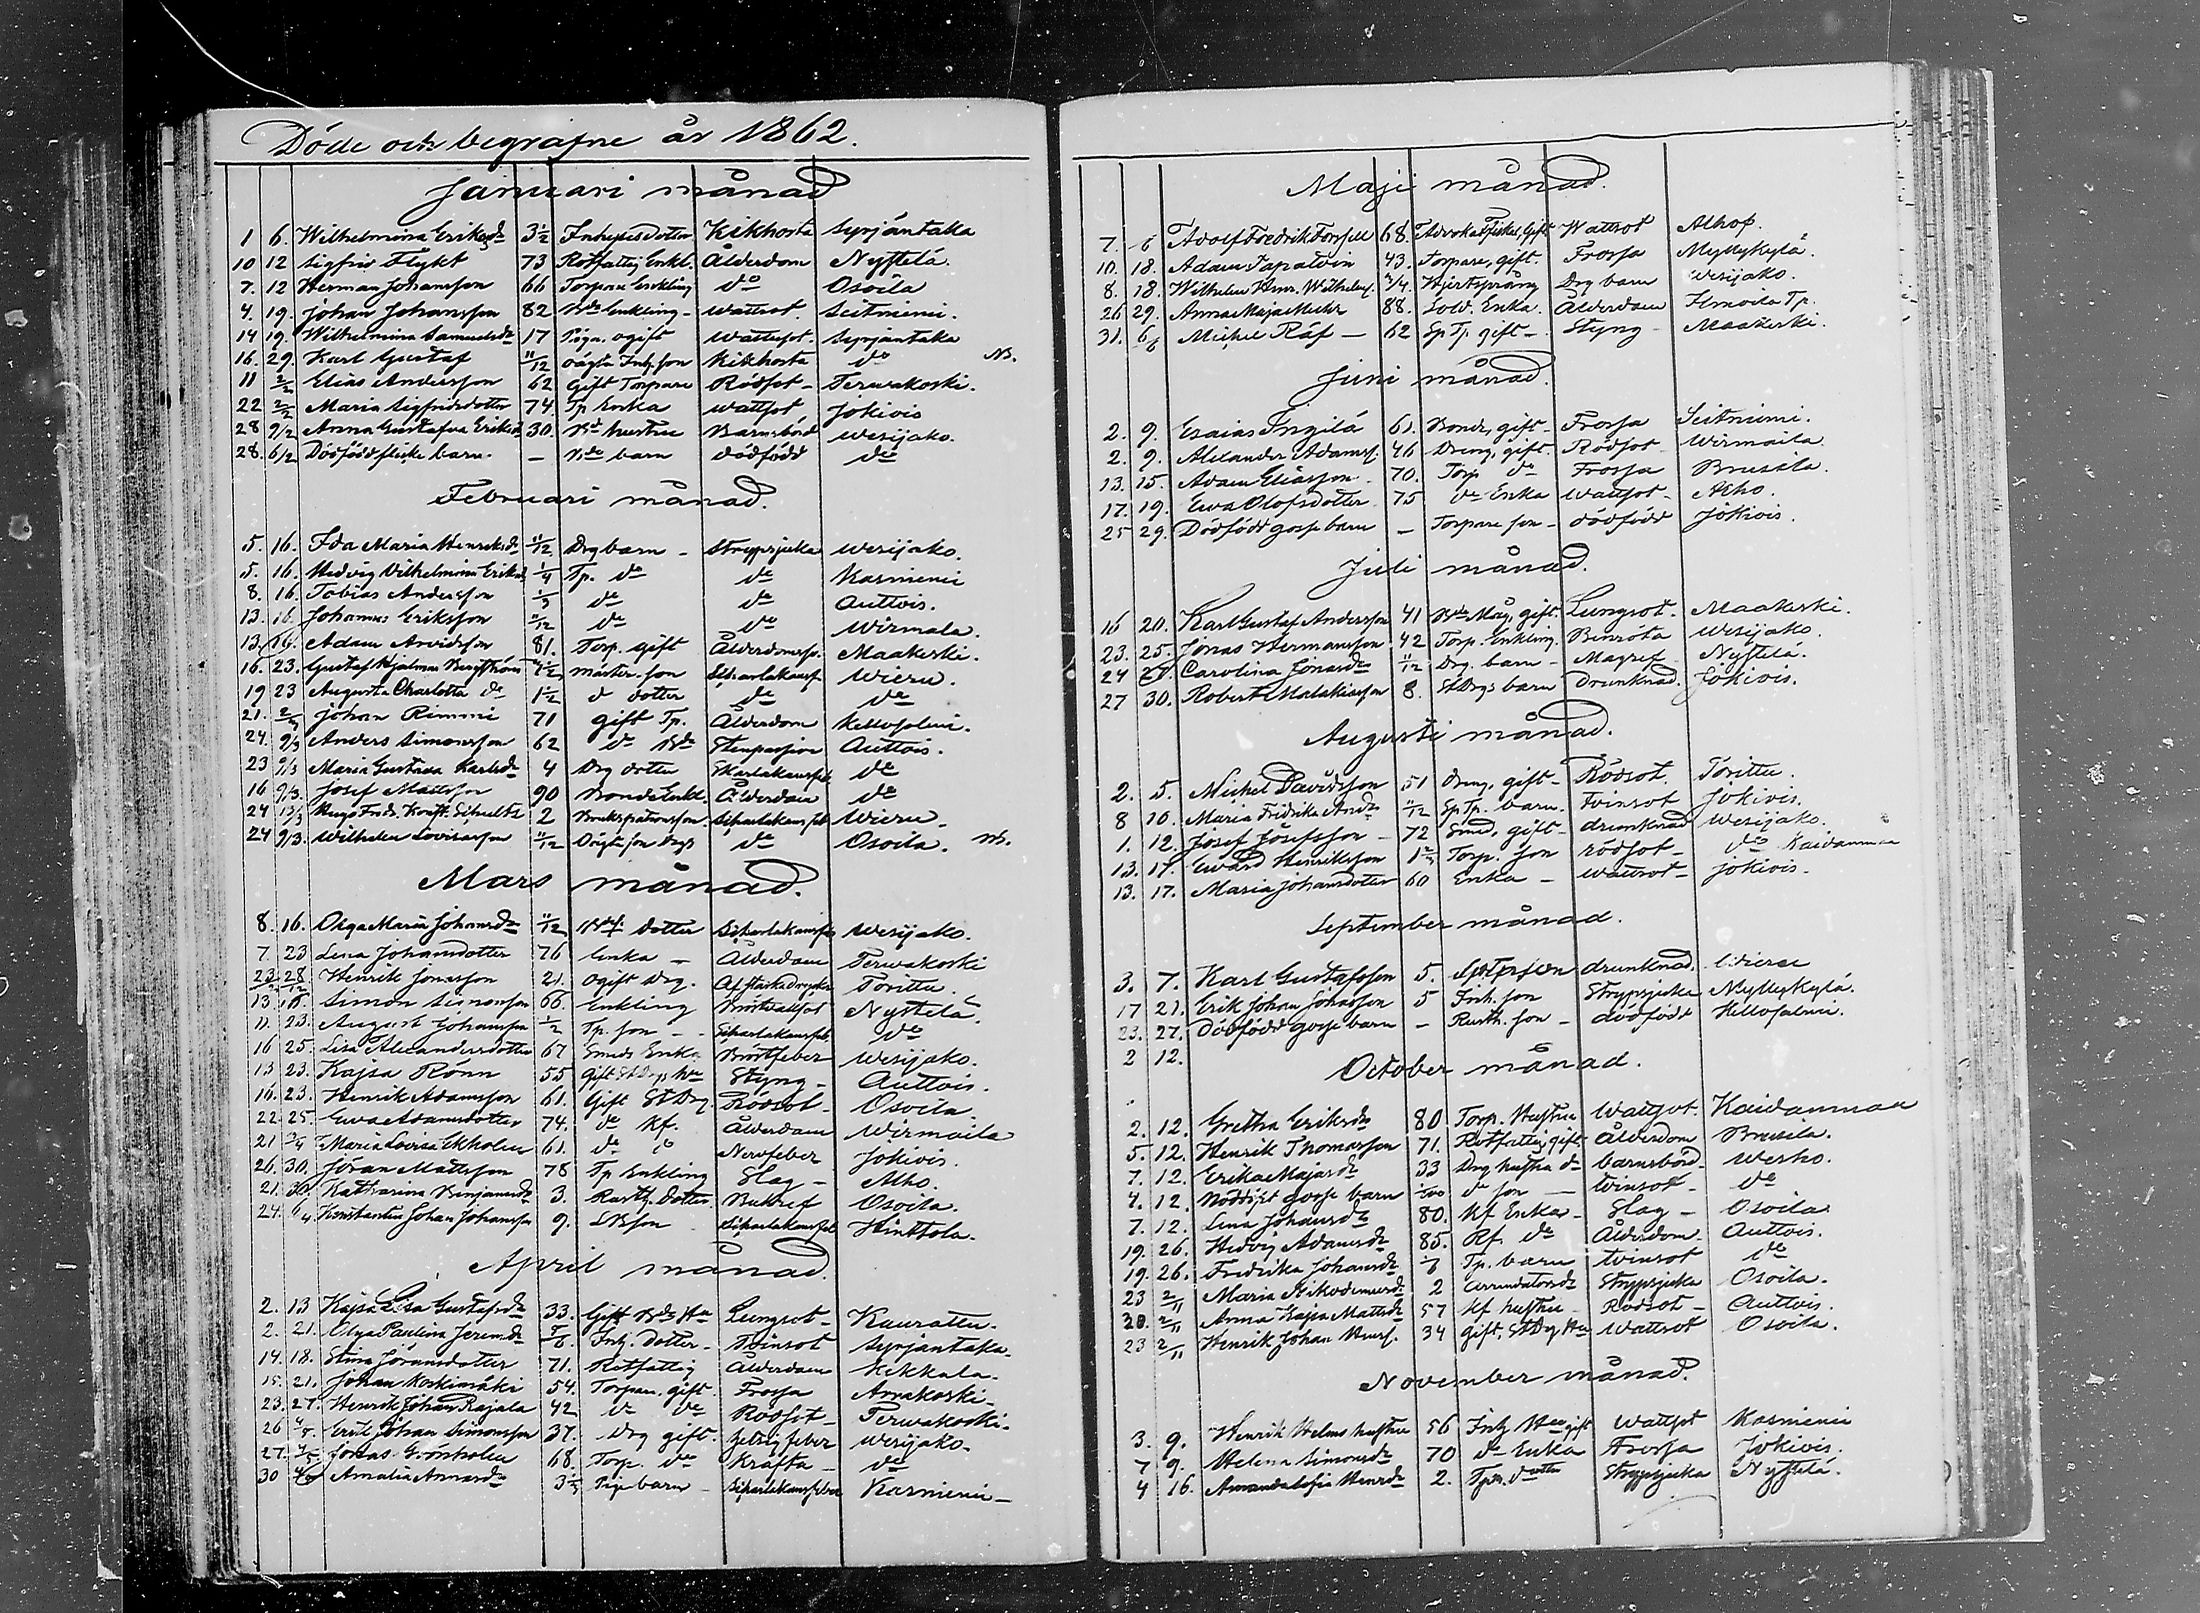 Döde och begrafne år 1862.
Januari månad
1 6. Wilhelmina Eriksdr 3½ Inhyses Dotter Kikhosta Syrjäntaka
10 12 Sigfrid Flykt 73 Rotfattig Enkl. Ålderdom Nystelä.
7. 12 Herman Johansson 66 Torpare Enkling do Osoila
4. 19. Johan Johansson 82 Bde Enkling - Wattsot. Seitniemi.
14 19. Wilhelmina Samuelsdr 17 Piga, ogift Wattusot. Syrjäntaka
16. 29. Karl Gustaf 11/12 oägta Inh. son Kikhosta do NB.
11 2/2 Elias Andersson 62 Gift Torpare Rödsot - Terwakoski.
22 2/2 Maria Sigfridsdotter 74 Tp Enka Wattsot Jokivis
28 9/2 Anna Gustafva Eriksd 30. Bd hustru Barnsbörd Wesijako.
28. 6/2 Dödfödd flicke barn. - Bde barn dödfödd do
Februari månad.
5. 16. Ida Maria Henriksdr 11/12 Drg barn - Strypsjuka Wesijako.
5. 16. Hedvig Vilhelmina Eriksd 1/4 Tp. do do Kasniemi
8. 16. Tobias Andersson 1/3 do do Auttois.
13. 16. Johannes Eriksson 2/12 do do Wirmala.
13. 16. Adam Arvidsson 81. Torp. gift Ålderdomssv. Maakeski.
16. 23. Gustaf Hjalmar Bergström 4½ mäster. son Scharlakansf Wieru.
19 23 Augusta Charlotta do 1½ d dotter do do
21. 2/3 Johan Rimmi 71 gift Tp. Ålderdom Kellosalmi.
24. 9/3 Anders Simonsson 62 do Bde Stenpassion Auttois.
23 9/3 Maria Gustava Karlsdr 4 Drg dotter Skarlakansfeb do
16 9/3. Josef Mattsson 90 Bonde Enkl. Ålderdom do
24 13/3 Hugo Fredr. Kraft. Schultz 2 Brukspatronsson. Scharlakansfeb Wieru -
24 9/3. Wilhelm Lovisasson 11/12 Oägta son Drgs do Osoila. NB.
Mars månad.
8. 16. Olga Maria Johansdr 11/12 dotter Scharlakansfeb Wesijako.
7. 23 Lena Johansdotter 76 Enka - Ålderdom Terwakoski
23/2 28/12 Henrik Jonasson 21. Ogift Drg. Af starka drycker Torittu.
13. 16. Simon Simonsson 66. Enkling Bröstvattsot Nystelä.
11. 23. August Johansson ½ Tp. son - Scharlakansfeb do
16 25. Lisa Alexandersdotter 67 Smeds Enka Bröstfeber Wesijako.
13 23. Kajsa Rönn 55 Gift St Drgs Hu Styng - Auttois.
16. 23. Henrik Adamsson 61. Gift St Drg. Rödsot - Osoila.
22. 25. Ewa Adamsdotter 74. do Kf. Ålderdom Wirmaila
21 Maria Lovisa Ekholm 61. do Nervfeber Jokivis.
26. 30. Jöran Mattsson 78 Tp Enkling Slag - Alho.
21. 30. Katharina Benjamsdr 3. Rusth. dotter Bukref Osoila.
24. 6/4 Konstantin Johan Johansson 9. Scharlakansfeb Hinttola.
April månad.
2. 13 Kajsa Lisa Gustafsdr 33. Gift Bds Hu Lungsot - Kaurattu.
2. 21. Olga Paulina Jeremdr 5/6. Inh. Dotter - Tvinsot Syrjäntaka.
14. 18. Stina Jöransdotter 71. Rotfattig Ålderdom Kikkala.
15. 21. Johan Koskimäki 54. Torpare, gift. Frossa Arrakoski -
23. 27. Henrik Johan Rajala 42 do do Rödsot - Terwakoski.
26 4/5. Erik Johan Simonsson 37. Drg gift. Hetsig feber Wesijako.
27. 4/5 Jonas Grönholm 68. Torp. do Kräfta - do
30 Amalia Annasdr 3½ Pige barn - Scharlakansfeber Kasniemi -
Maji månad.
7. 6 Adolf Fredrik Forssell 68. Advokat Fiskal, Gift Wattsot Alhof.
10. 18. Adam Papatvin 43. Torpare, gift. Frossa Myllykylä.
8. 18. Wilhelm Henr. Wilhelms. 2/4. Hjertsprång Drg barn Wesijako.
26 29. Anna Maja Michr 88. Sold. Enka. Ålderdom Ilmoila Tp.
31. 6/6 Michel Räf - 62 Sp Tp. gift - Styng - Maakeski.
Juni månad.
2. 9. Esaias Ingilä 61. Bonde, gift - Frossa Seitniemi.
2. 9. Alexander Adamss. 46 Dreng, gift. Rödsot - Wirmaila.
13. 15. Adam Eliasson - 70. Torp do Frossa Brusila.
17. 19. Ewa Olofsdotter 75 do Enka Wattsot - Alho.
25 29. Dödfödt gosse barn - Torpare son - dödfödd Jokivis.
Juli månad.
16 20. Karl Gustaf Andersson 41 Bde Måg, gift. Lungsot - Maakeski.
23. 25. Jonas Hermansson 42 Torp. Enkling. Benröta Wesijako.
24 27. Carolina Jonasdr 11/12 Drg. barn - Magref Nystelä.
27 30. Robert Malakiasson 8. St Drgs barn Drunknad. Jokivis.
Augusti månad.
2. 5. Michel Davidsson 51 Dreng, gift - Rödsot. Torittu.
8 10. Maria Fridrika Andr 11/12 Sp Tp. barn. Tvinsot Jokivis.
1. 12. Josef Josefsson - 72 Smed, gift - drunknad Wesijako.
13. 17. Edvard Henriksson Torp. son rödsot - do Kaidanmaa
13. 17. Maria Johansdotter 60 Enka - Wattsot - Jokivis.
September månad.
3. 7. Karl Gustafsson 5. drunknad Wieru
17 21. Erik Johan Johansson 5 Inh. son Strypsjuka Myllykylä.
23. 27. Dödfödd gosse barn - Rusth. son - dödfödt Kellosalmi.
2 12.
October månad.
2. 12. Gretha Eriksdr 80 Torp. Hustru Wattsot. Kaidanmaa
5. 12. Henrik Thomasson 71. Rotfattig gift. Ålderdom Brusila.
7. 12. Erika Majasdr 33 Drg hustru do barnsbörd - Wesko.
4. 12. Nöddöpt gosse barn do son - tvinsot - do
7. 12. Lena Johansdr 80. Kf Enka - Slag - Osoila
19. 26. Hedvig Adamsdr 85. Rf. do Ålderdom. Auttois.
19. 26. Fredrika Johansdr Tp. barn tvinsot do
23 2/11 Maria Nikodemusdr 2 Arrendatorsdr Strypsjuka Osoila.
28. 2/11 Anna Kajsa Mattsdr 57 Kf hustru - Rödsot - Auttois.
23 2/11 Henrik Johan Henrs. 34 gift, St Drg Hu Wattsot Osoila.
November månad.
3. 9. Henrik Helms hustru 56 Inh Hu gift Wattsot Kasniemi
7 9. Helena Simonsdr 70 do Enka Frossa Jokivis.
4 16. Amanda Sofia Henrdr 2. Tprs dotter Strypsjuka Nystelä.